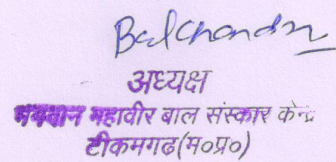 Balchandra
अध्यक्ष
भगवान महावीर बाल संस्कार केन्द्र
टीकमगढ (म०प्र०)